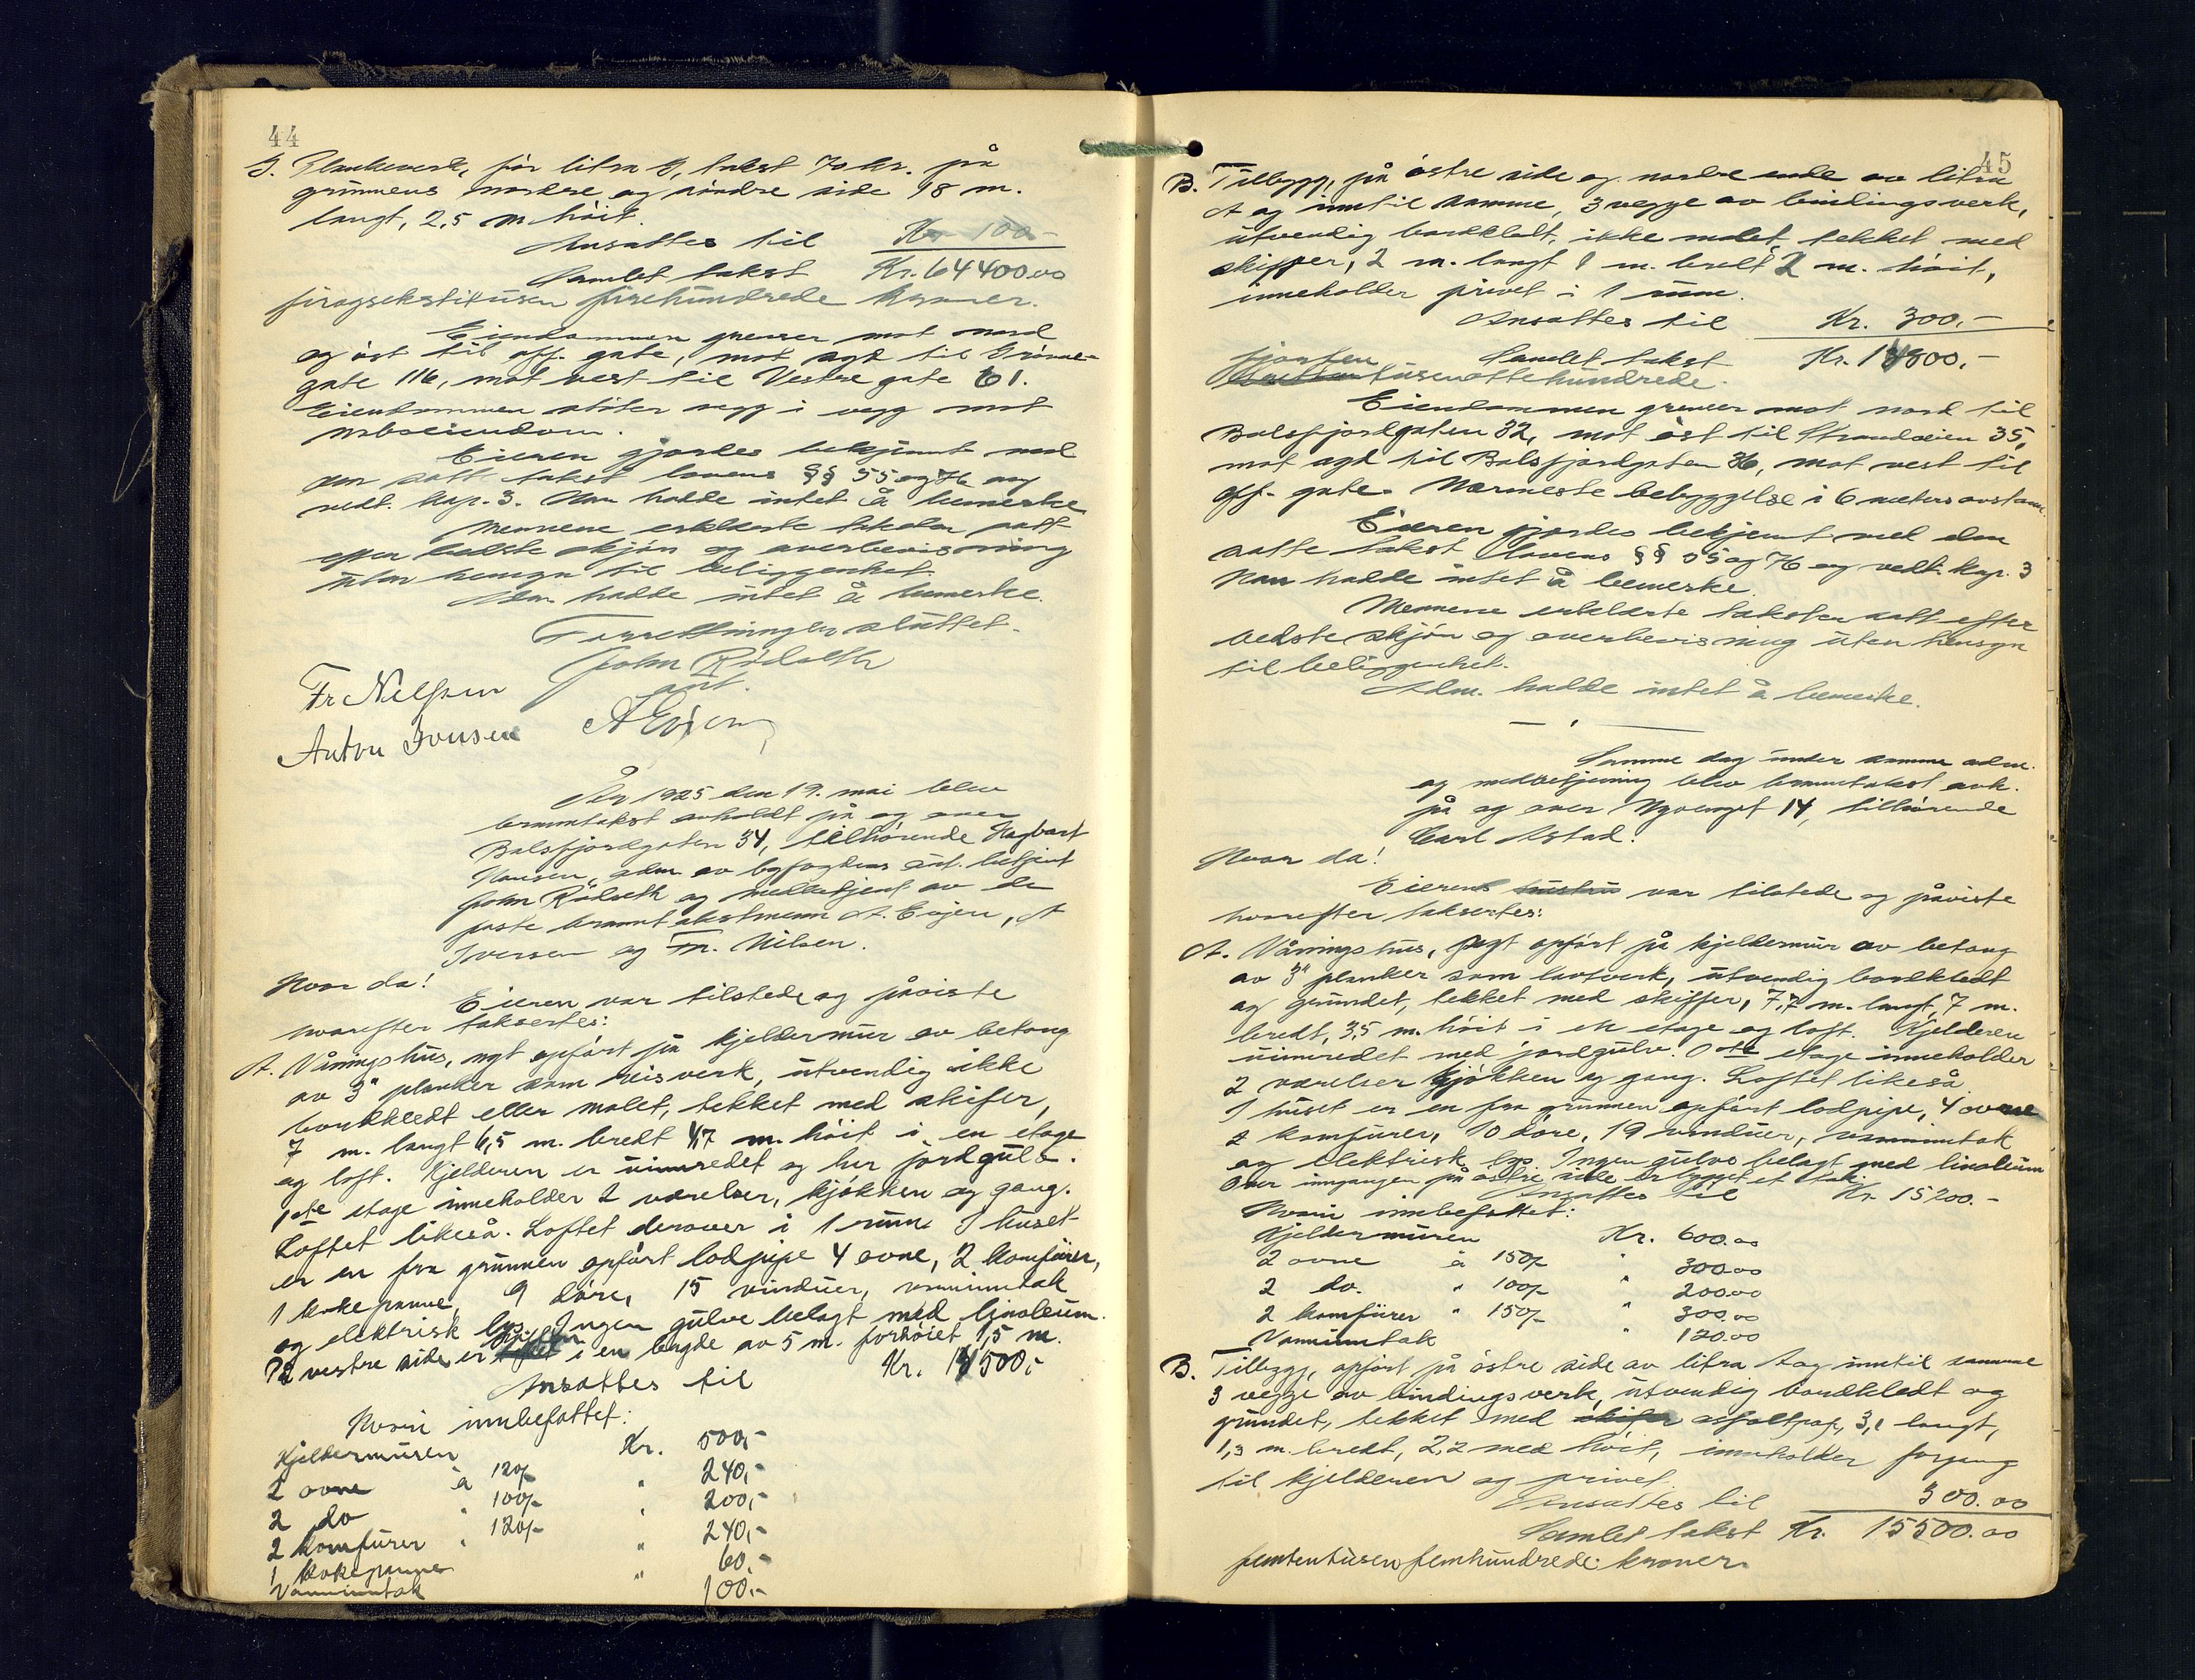 44
J. Plankeverk, før litra G, takst 70 kr. på
grunnens nordre og søndre side 18 m.
langt, 2,5 m høit.
Ansattes til Kr 100.-
Samlet takst Kr. 64400.00
firogsekstitusen firehundrede kroner.
Eiendommen grenser mot nord
og øst til off. gate, mot syd til Grønne-
gate 116, mot vest til Vestre gate 61.
Eiendommen støter vegg i vegg mot
naboeiendom.
Eieren gjordes bekjennt med
den satte takst lovens §§ 55 og 76 og
vedt. kap. 3. Han hadde intet å bemerke
Mennene erklærte taksten satt
efter bedste skjøn og overbevisning
uten hensyn til beliggenhet.
Adm. hadde intet å bemerke.
Forretningen sluttet.
John Rödseth
aut.
Fr Nilsen
Anton Iversen A Evjen
År 1925 den 19. mai blev
branntakst avholdt på og over
Balsfjordgaten 34, tilhørende Hagbart
Hansen, adm. av byfogdens aut. betjent
John Rödseth og medbetjent av de
faste branntakstmenn A. Evjen, A
Iversen og Fr. Nilsen.
Hvor da!
Eieren var tilstede og påviste
hvorefter taksertes:
A. Våningshus, nyt opført på kjeldermur av betong
av 3" planker som reisverk, utvendig ikke
bordkledt eller malet, tekket med skifer,
7 m. langt 6,5 m. bredt 4,7 m. høit i en etage
og loft. Kjelderen er uinnredet og har jordgulv.
1ste etage inneholder 2 værelser, kjøkken og gang.
Loftet likeså. Loftet derover i 1 rum. I huset
er en fra grunnen opført lodpipe 4 ovne, 2 komfürer,
1 kokepanne, 9 døre, 15 vinduer, vanninntak
og elektrisk lys. Ingen gulve belagt med linoleum.
På vestre side er loftet i en lengde av 5 m. forhøiet 1,5 m.
Ansattes til Kr. 14500,-
Hvori innbefattet:
Kjeldermuren Kr. 500,-
2 ovne à 120/- " 240,-
2 do " 100/- " 200,-
2 komfürer " 120/- " 240,-
1 kokepanne " 60.-
Vanninntak 100.-
45
B. Tilbygg, på østre side og nordre ende av litra
A og inntil samme, 3 vegge av bindingsverk,
utvendig bordkledt, ikke malet, tekket med
skiffer, 2 m. langt 1 m. bredt 2 m. høit,
inneholder privet i 1 rum.
Ansattes til Kr. 300.-
Samlet takst Kr. 14800.-
fjorten
tusenottehundrede.
Eiendommen grenser mot nord til
Balsfjordgaten 32, mot øst til Strandveien 35,
mot syd til Balsfjordgaten 36, mot vest til
off. gate. Nærmeste bebyggelse i 6 meters avstann.
Eieren gjordes bekjennt med den
satte takst lovens §§ 55 og 76 og vedt. kap. 3
Han hadde intet å bemerke.
Mennene erklærte taksten satt efter
bedste skjøn og overbevisning uten hensyn
til beliggenhet.
Adm. hadde intet å bemerke.
Samme dag under samme adm.
og medbetjening blev branntakst avh.
på og over Nyvenget 14, tilhørende
Carl Astad.
Hvor da!
Eierens hustru var tilstede og påviste
hvorefter taksertes:
A. Våningshus, nyt opført på kjeldermur av betong
av 3" planker som lavtverk, utvendig bordkledt
og grundet, tekket med skiffer, 7,7 m. langt, 7 m.
bredt, 3,5 m. høit i en etage og loft. Kjelderen
uinnredet med jordgulv. 1ste etage inneholder
2 værelser kjøkken og gang. Loftet likeså.
I huset er en fra grunnen opført lodpipe, 4 ovne
2 komfürer, 10 døre, 19 vinduer, vanninntak
og elektrisk lys. Ingen gulve belagt med linoleum
Over inngangen på østre side er bygget et tak.
Ansattes til Kr. 15200.-
Hvori innbefattet:
Kjeldermuren Kr. 600.00
2 ovne à 150/- " 300.00
2 do. " 100/- " 200.00
2 komfürer " 150/- " 300.00
Vanninntak " 120.00
B. Tilbygg, opført på østre side av litra A og inntil samme
3 vegge av bindingsverk, utvendig bordkledt og
grundet, tekket med skifer asfaltpap, 3,1 langt,
1,3 m. bredt, 2,2 med høit, inneholder forgang
til kjelderen og privet.
Ansattes til 300.00
Samlet takst Kr. 15500.00
femtentusenfemhundrede kroner.